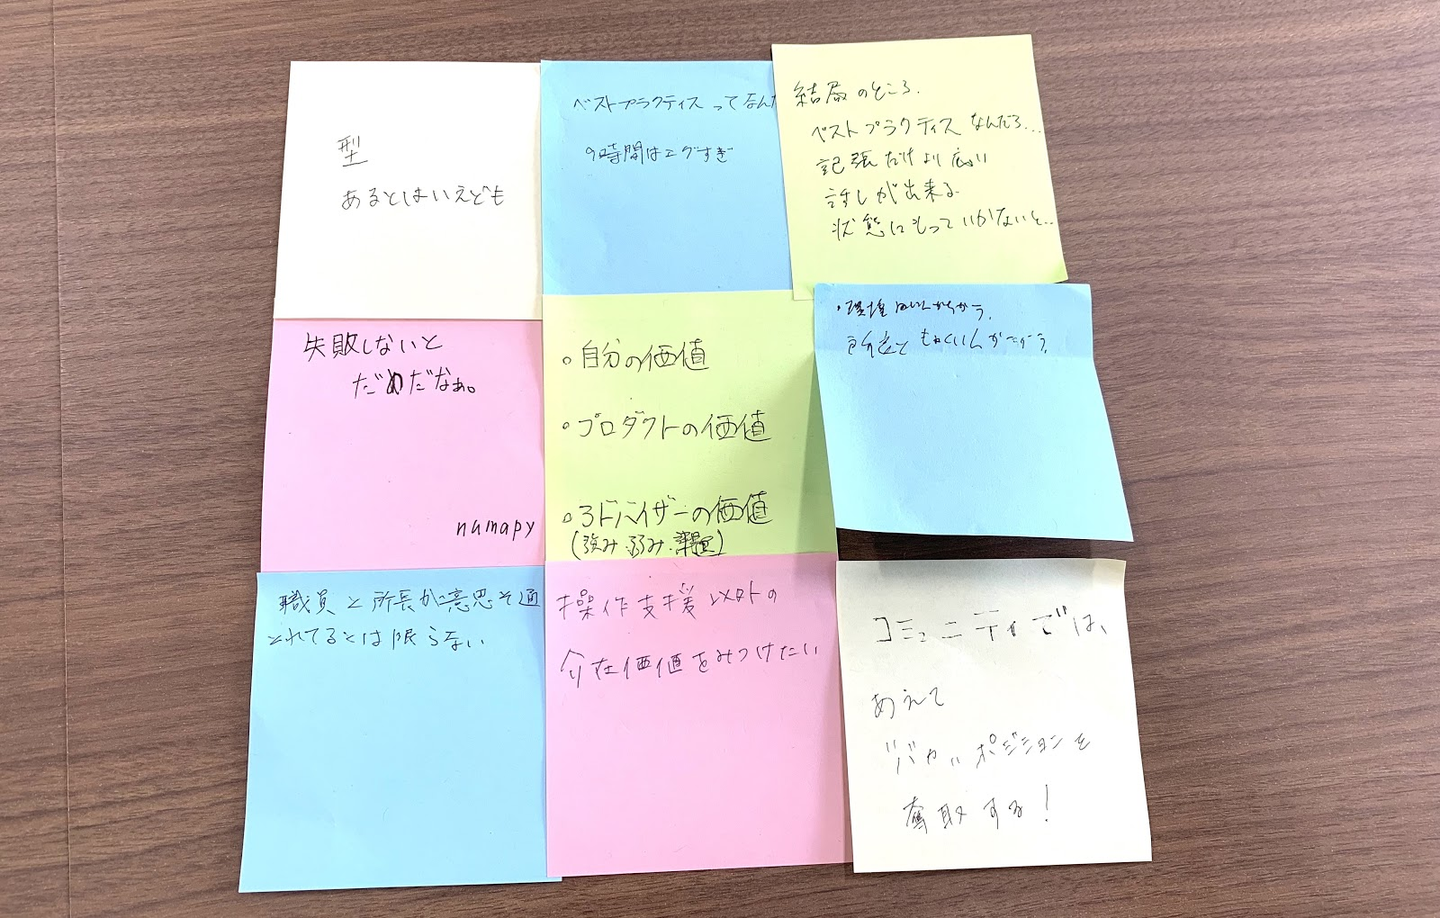 型
あるとはいえども
ベストプラクティスってなん
9時間はエグすぎ
結局のところ、
ベストプラクティスなんだろ...
記張だけより広い
話しが出来る
状態にもっていかないと...
失敗しないと
だめだなぁ。
numapy
・自分の価値
・プロダクトの価値
・アドバイザーの価値
(強み・弱み・課題)
・環境
がちがう。
職員と所長が意思そ通
とれてるとは限らない
操作支援以外の
介在価値をみつけたい
コミュニティでは、
あえて
"バカ"ポジションを
奪取する!